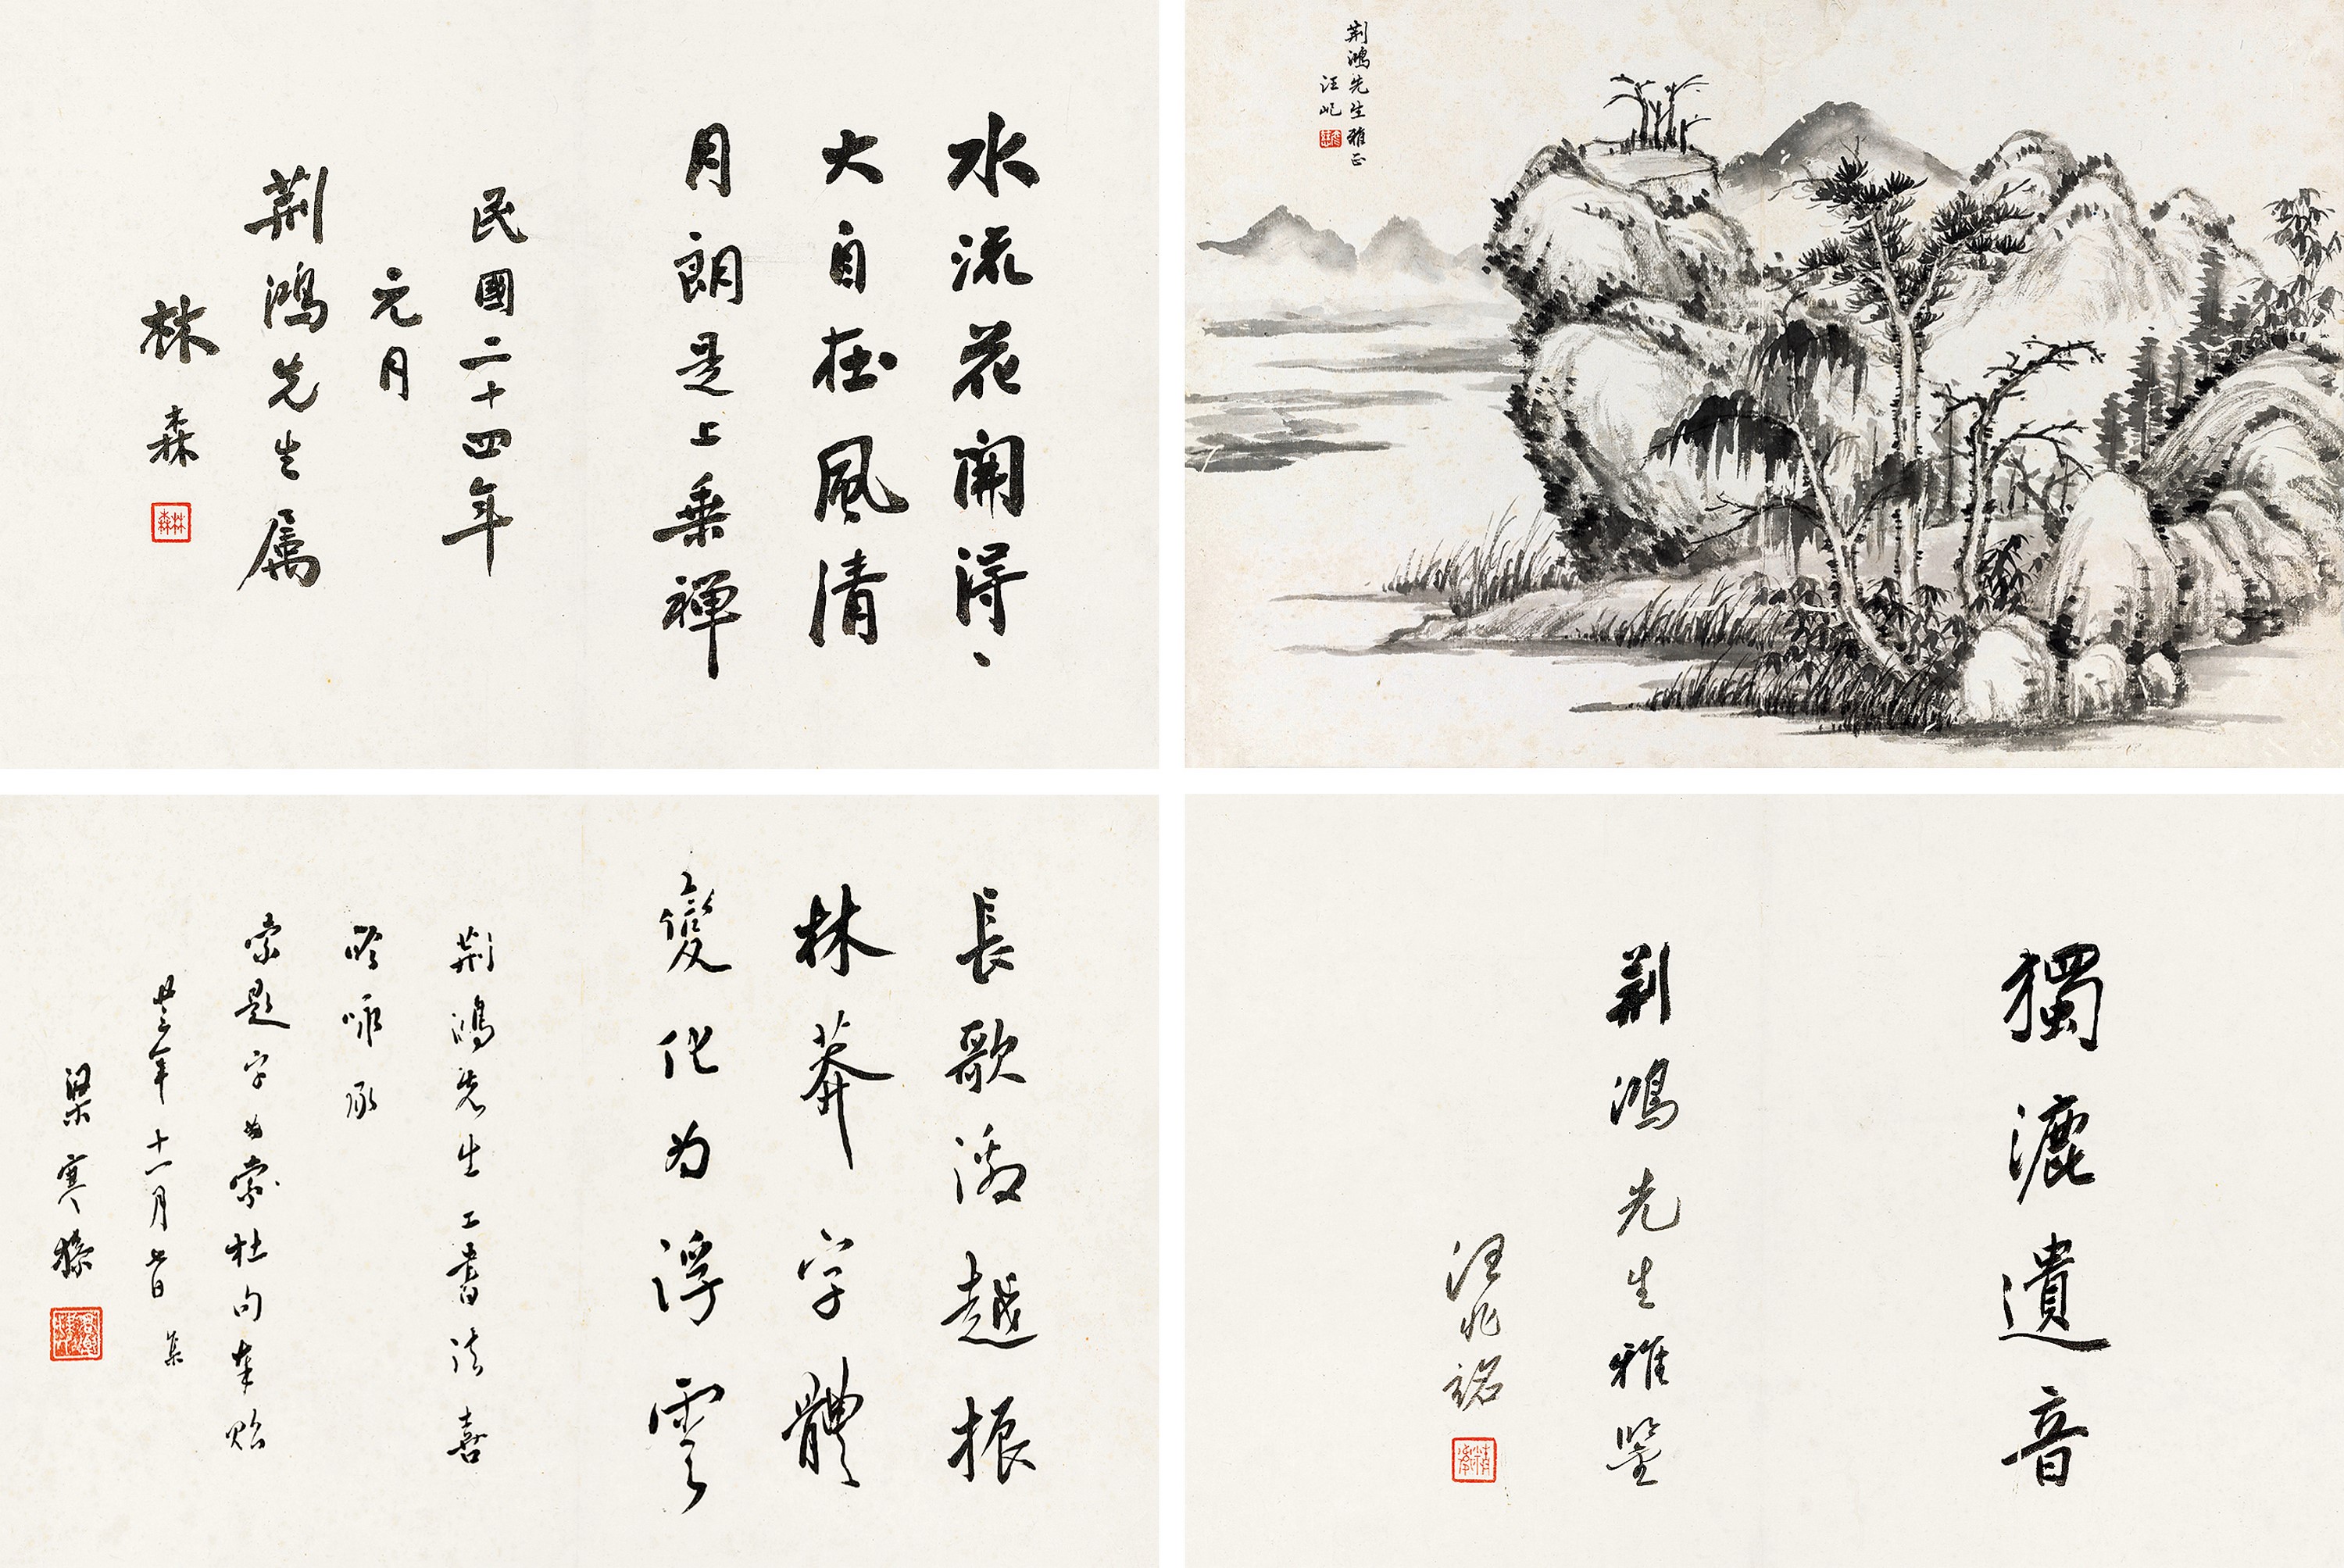 水流花開得、
大自在風清
月朗是上乘禅
民國二十四年
元月
荆鴻先生属
林森
林森
荆鴻先生雅正
汪屺
長歌激越振
林莽字體
變化為浮雲
荆鴻先生工書法喜
吟咏承
索題字索杜句奉貽
廿三年十一月日 集
梁寒操
獨漉遺音
荆鴻先生雅鑒
汪兆銘
精衛